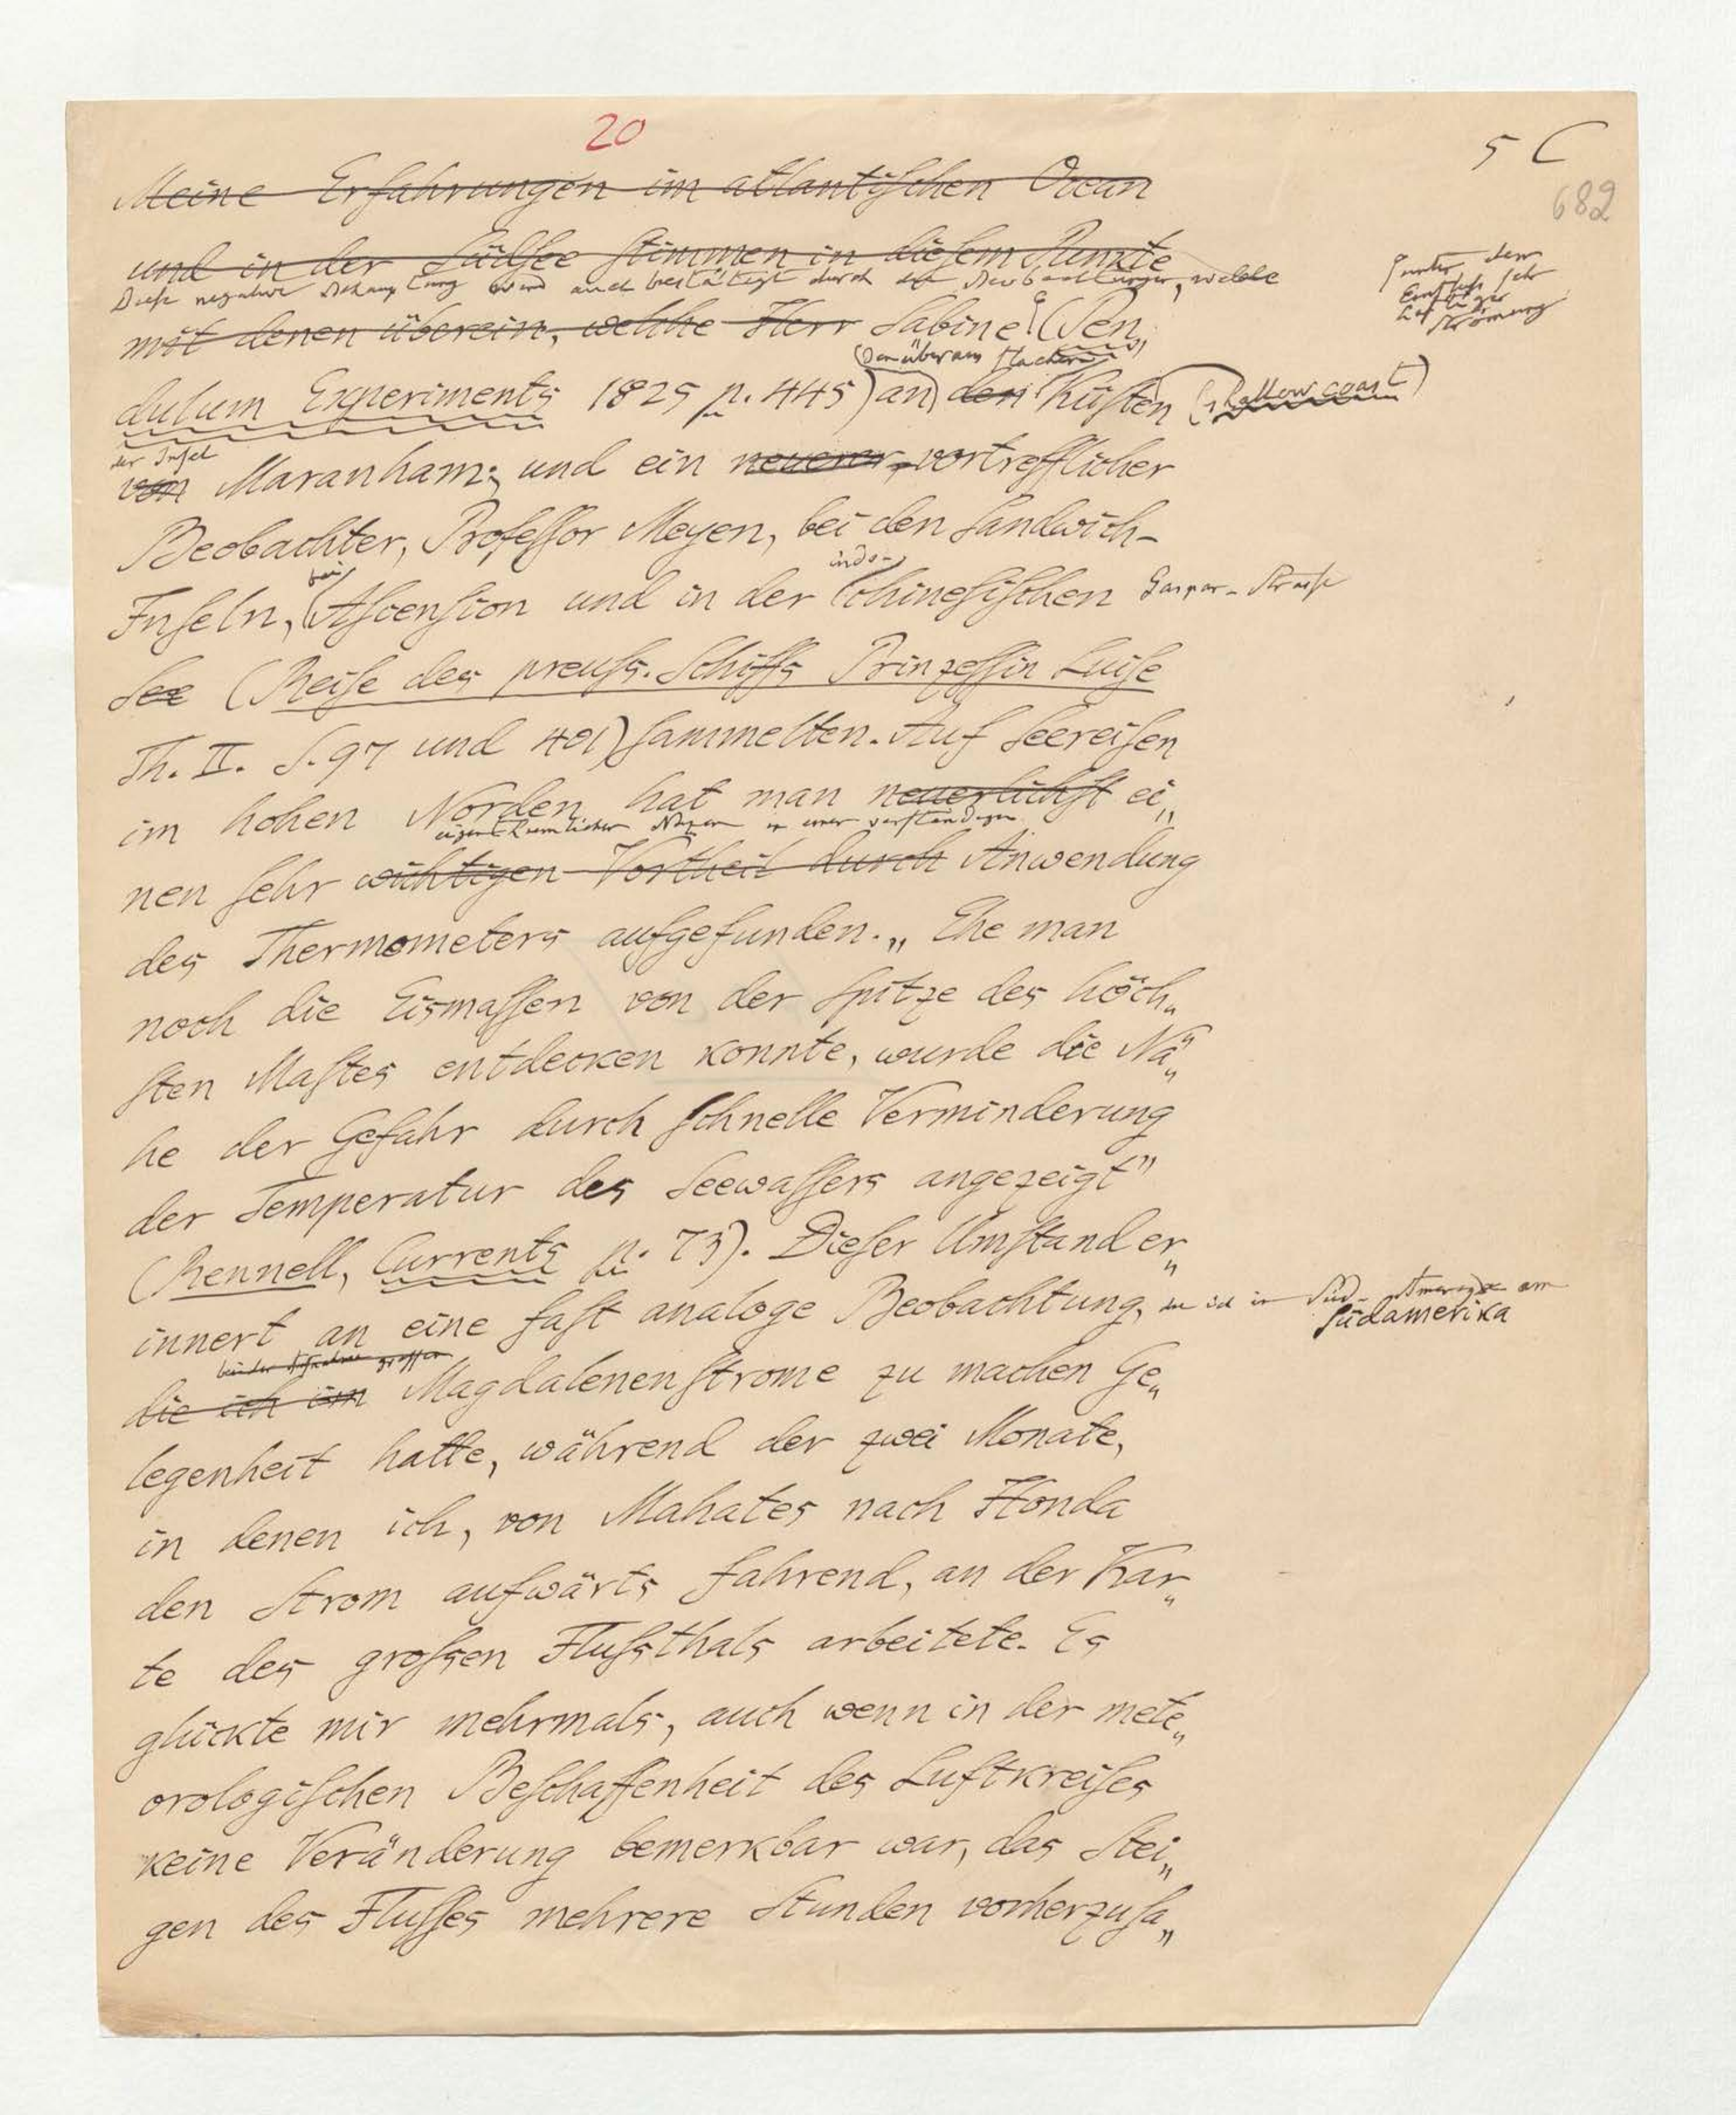 20
5 C
682
Meine Erfahrungen im atlantiſchen Ocean
und in der Südſee ſtimmen in dieſem Punkte
Dieſe negative Behauptung wird auch beſtätigt durch die Beobachtungen, welche
unter dem
Einfluſs ſehr
heftiger
Strömung
mit denen überein, welche Herr Sabine (Pen„
(den überaus flachen)
dulum Experiments 1825 p. 445) an den Küſten (shallow coast)
der Inſel
von Maranham; und ein neuerer, vortrefflicher
Beobachter, Profeſſor Meyen, bei den Sandwich-
bei indo-
Inſeln, Aſcenſion und in der chineſiſchen Gaspar-Straſse
See (Reiſe des preuſs. Schiffs Prinzeſſin Luiſe
Th. II. S. 97 und 401) ſammelten. Auf Seereiſen
im hohen Norden hat man neuerlichſt ei„
eigenthümlichen Nuzen in einer verſtändigen
nen ſehr wichtigen Vortheil durch Anwendung
des Thermometers aufgefunden. „Ehe man
noch die Eismaſſen von der Spitze des höch„
ſten Maſtes entdecken konnte, wurde die Nä„
he der Gefahr durch ſchnelle Verminderung
der Temperatur des Seewaſſers angezeigt”
(Rennell, Currents p. 73). Dieſer Umſtand er„
innert an eine faſt analoge Beobachtung, die ich in Süd-Amerika am
Südamerika
bei der Aufnahme groſſen
die ich im Magdalenenſtrome zu machen Ge„
legenheit hatte, während der zwei Monate,
in denen ich, von Mahates nach Honda
den Strom aufwärts fahrend, an der Kar„
te des groſsen Fluſsthals arbeitete. Es
glückte mir mehrmals, auch wenn in der mete„
orologiſchen Beſchaffenheit des Luftkreiſes
keine Veränderung bemerkbar war, das Stei„
gen des Fluſſes mehrere Stunden vorherzuſa„